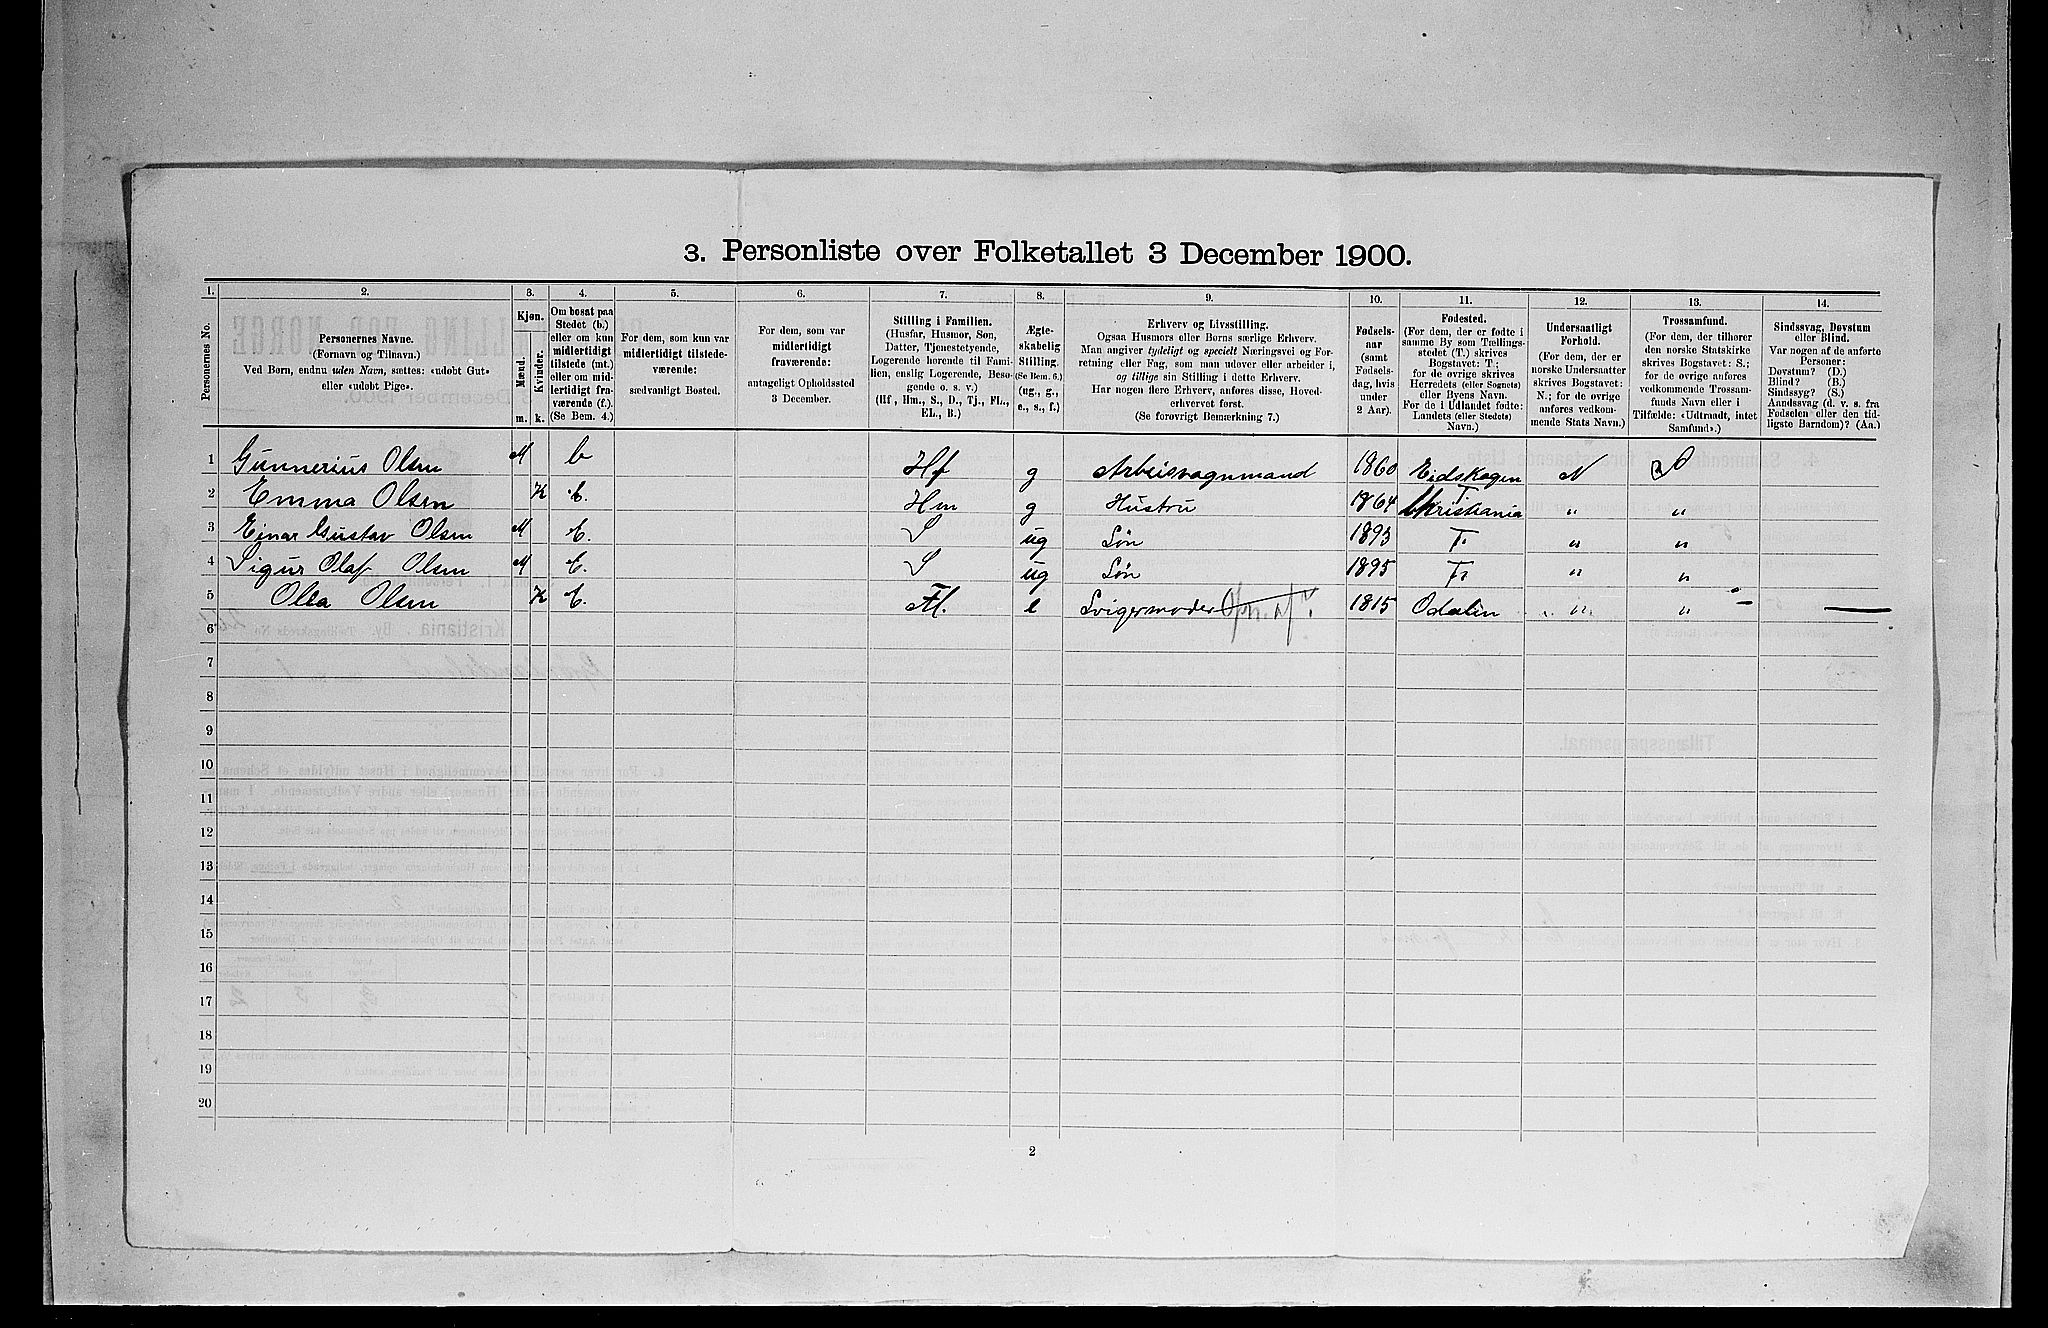 3. Personliste over Folketallet 3 December 1900.
1. 2. 3. 4. 5. 6. 7. 8. 9. 10. 11. 12. 13. 14.
Personernes No.
Personernes Navne.
(Fornavn og Tilnavn.)
Ved Børn, endnu uden Navn, sættes: «udøbt Gut»
eller «udøbt Pige».
Kjøn.
Mænd.
Kvinder.
m. k.
Om bosat paa
Stedet (b.)
eller om kun
midlertidigt
tilstede (mt.)
eller om mid-
lertidigt fra-
værende (f.).
(Se Bem. 4.)
For dem, som kun var
midlertidigt tilstede-
værende:
sædvanligt Bosted.
For dem, som var
midlertidigt
fraværende:
antageligt Opholdssted
3 December.
Stilling i Familien.
(Husfar, Husmor, Søn,
Datter, Tjenestetyende,
Logerende hørende til Fami-
lien, enslig Logerende, Besø-
gende o. s. v.)
(Hf, Hm., S., D., Tj., FL.,
EL., B.)
Ægte-
skabelig
Stilling.
(Se Bem. 6.)
(ug., g.,
e., s., f.)
Erhverv og Livsstilling.
Ogsaa Husmors eller Børns særlige Erhverv.
Man angiver tydeligt og specielt Næringsvei og For-
retning eller Fag, som man udøver eller arbeider i,
og tillige sin Stilling i dette Erhverv.
Har nogen flere Erhverv, anføres disse, Hoved-
erhvervet først.
(Se forøvrigt Bemærkning 7.)
Fødsels-
aar
(samt
Fødsels-
dag, hvis
under
2 Aar).
Fødested.
(For dem, der er fødte i
samme By som Tællings-
stedet (T.) skrives
Bogstavet: T.;
for de øvrige skrives
Herredets (eller Sognets)
eller Byens Navn.
For de i Udlandet fødte:
Landets (eller Stedets)
Navn.)
Undersaatligt
Forhold.
(For dem, der er
norske Undersaatter
skrives Bogstavet:
N.; for de øvrige
anføres vedkom-
mende Stats Navn.)
Trossamfund.
(For dem, der tilhører
den norske Statskirke
skrives Bogstavet: S.;
for de øvrige anføres
vedkommende Trossam-
funds Navn eller i
Tilfælde: «Udtraadt, intet
Samfund».)
Sindssvag, Døvstum
eller Blind.
Var nogen af de anførte
Personer:
Døvstum? (D.)
Blind? (B.)
Sindssyg? (S.)
Aandssvag (d. v. s. fra
Fødselen eller den tid-
ligste Barndom)? (Aa.)
1 Gunnerius Olsen M b Hf g Arbeisvognmand 1860 Eidskogen N S
2 Emma Olsen K b. Hm g Hustru 1864 T. Christiania „ „
3 Einar Gustav Olsen M b. S ug Søn 1893 T. „ „
4 Sigur Olaf Olsen M b. S ug Søn 1895 T. „ „
5 Olea Olsen K b. Fl. e Svigermoder 1815 Odalen „ „
6
7
8
9
10
11
12
13
14
15
16
17
18
19
20
2